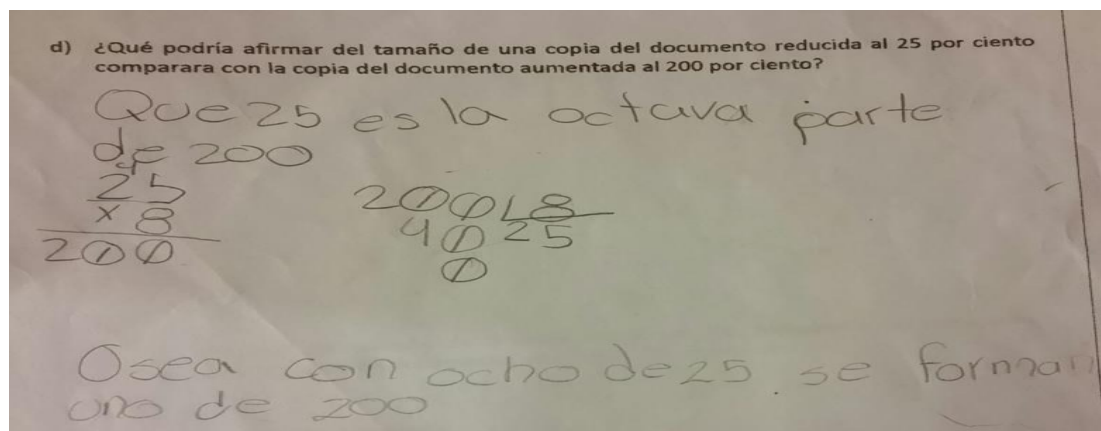 d) ¿Qué podría afirmar del tamaño de una copia del documento reducida al 25 por ciento
comparara con la copia del documento aumentada al 200 por ciento?
Que 25 es la octava parte
de 200
4
25
x 8
200
200 L 8
40 25
0
Osea con ocho de 25 se forman
uno de 200